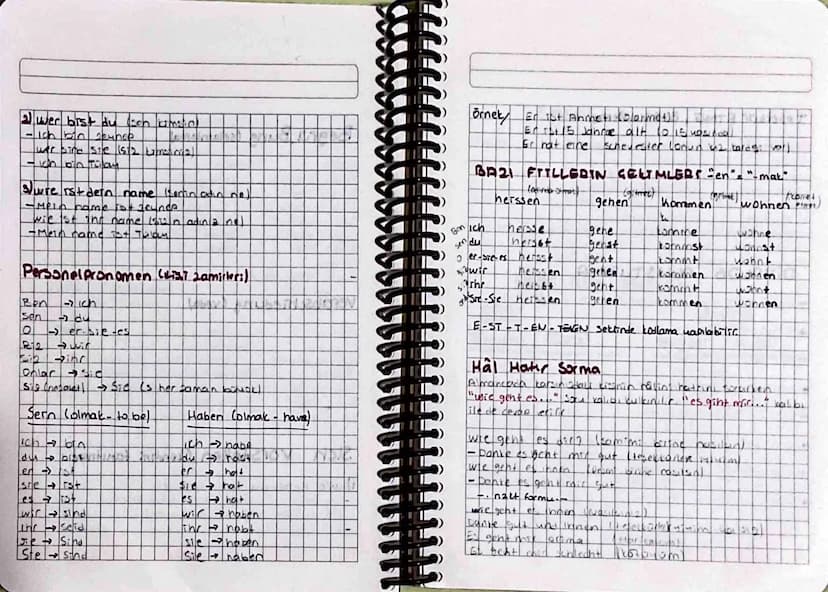 2) Wer bist du (sen kimsin)
- Ich bin Zeynep
wer sind Sie (siz kimsiniz)
- Ich bin Tülay
3) wie ist dein name (senin adın ne)
- Mein name ist Zeynep
wie ist ihr name (sizin adınız ne)
- Mein name ist Tülay
Personelpronomen (KİŞİ zamirleri)
Ben → ich
Sen → du
O → er-sie-es
Biz → wir
Siz → ihr
Onlar → sie
Siz (nezaket) → Sie (S her zaman büyük)
Sein (olmak - to be)
ich → bin
du → bist
er → ist
sie → ist
es → ist
wir → sind
ihr → seid
sie → sind
Sie → sind
Haben (olmak - have)
ich → habe
du → hast
er → hat
sie → hat
es → hat
wir → haben
ihr → habt
sie → haben
Sie → haben
Örnek/ Er ist Ahmet
Er ist 15 Jahre alt (o 15 yaşında)
Er hat eine schwester (onun kız kardeşi var)
BAZI FİİLLERİN ÇEKİMLERİ "en" = "-mak"
heissen gehen (gitmek) kommen (gelmek) wohnen
Ben ich heisse gehe komme wohne
sen du heisst gehst kommst wohnst
o er-sie-es heisst geht kommt wohnt
biz wir heissen gehen kommen wohnen
siz ihr heisst geht kommt wohnt
Sie-sie heissen gehen kommen wohnen
E-ST-T-EN-T-EN şeklinde kodlama yapılabilir.
Hâl Hatır Sorma
Almancada karşındaki kişinin hâlini hatrını sorarken
"wie geht es..." soru kalıbı kullanılır. "es geht mir..." kalıbı
ile de cevap verilir
wie geht es dir? (samimi birine nasılsın)
- Danke es geht mir gut (teşekkürler iyiyim)
wie geht es ihnen (resmi birine nasılsın)
- Danke es geht mir gut
-. nazik formu.-
wie geht es ihnen (nasılsınız)
Danke gut und ihnen
Es geht mir prima (harikayım)
Es geht mir schlecht (kötüyüm)